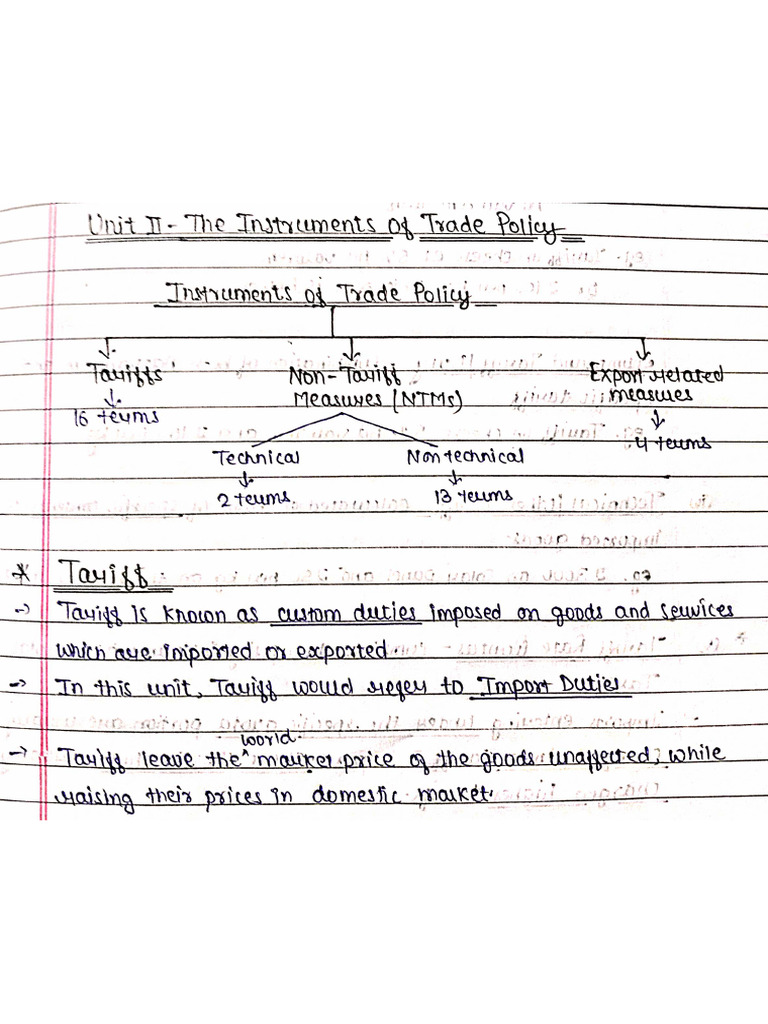 Unit II - The Instruments of Trade Policy
Instruments of Trade Policy
Tariffs Non-Tariff Export related
Measures (NTMs) measures
16 terms 4 terms
Technical Non technical
2 terms 13 terms
* Tariff
→ Tariff is known as custom duties imposed on goods and services
which are imported or exported
→ In this unit, Tariff would refer to Import Duties
→ Tariff leave the ^ world market price of the goods unaffected; while
raising their prices in domestic market